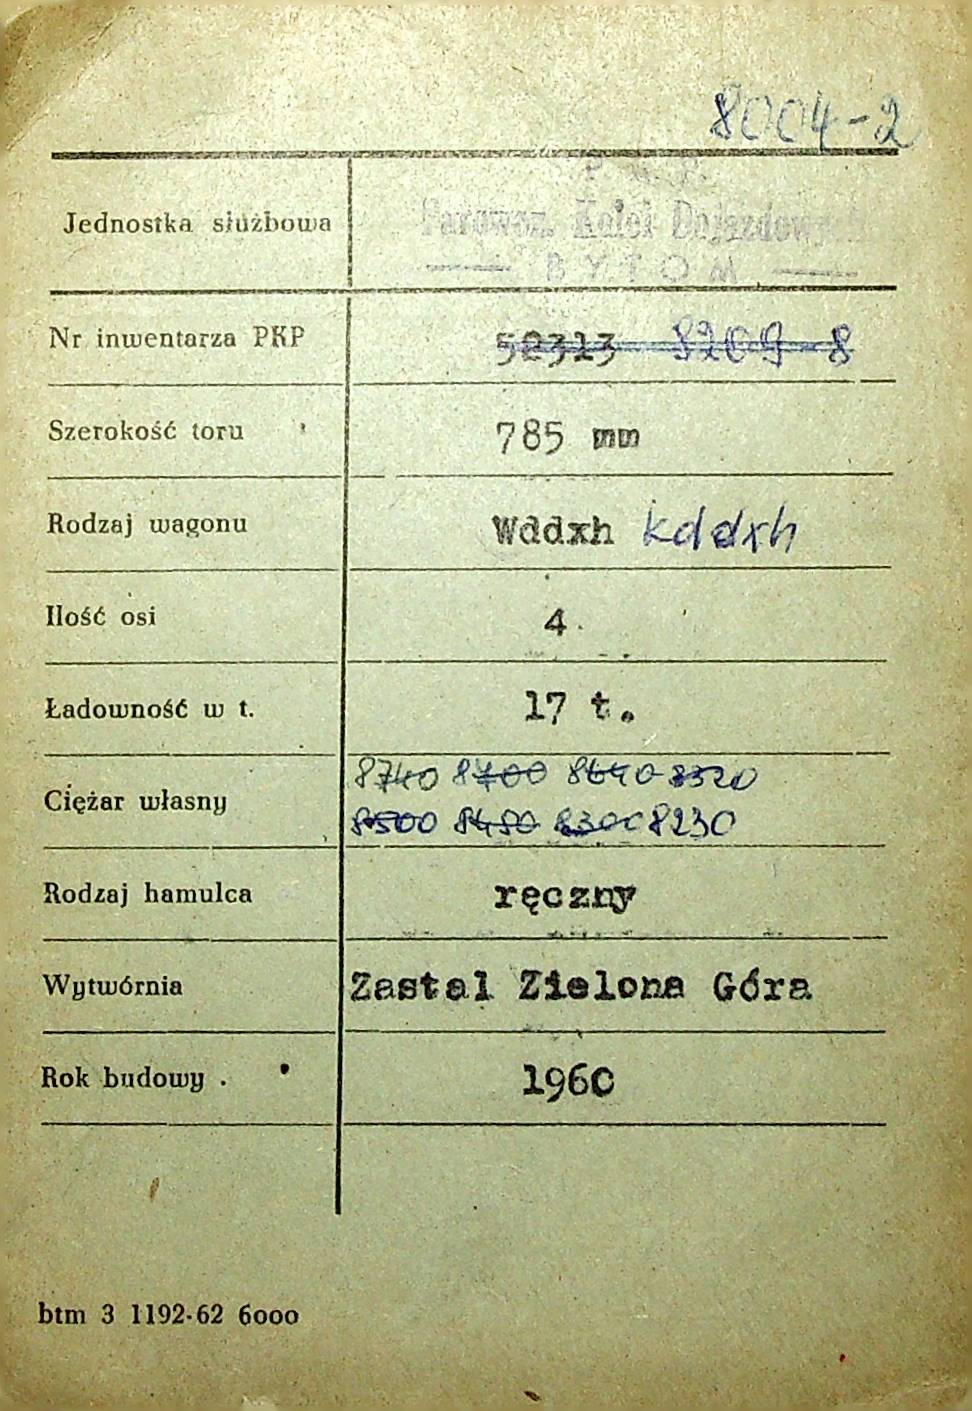 8004-2
P. K. P.
Jednostka służbowa Parowoz. Kolei Dojazdowych
BYTOM
Nr inwentarza PKP 52313 8209-8
Szerokość toru 785 mm
Rodzaj wagonu Wddxh kddxh
Ilość osi 4
Ładowność w t. 17 t.
8740 8700 8640 8320
Ciężar własny
8500 8480 8300 8230
Rodzaj hamulca ręczny
Wytwórnia Zastal Zielona Góra
Rok budowy . 1960
btm 3 1192-62 6000